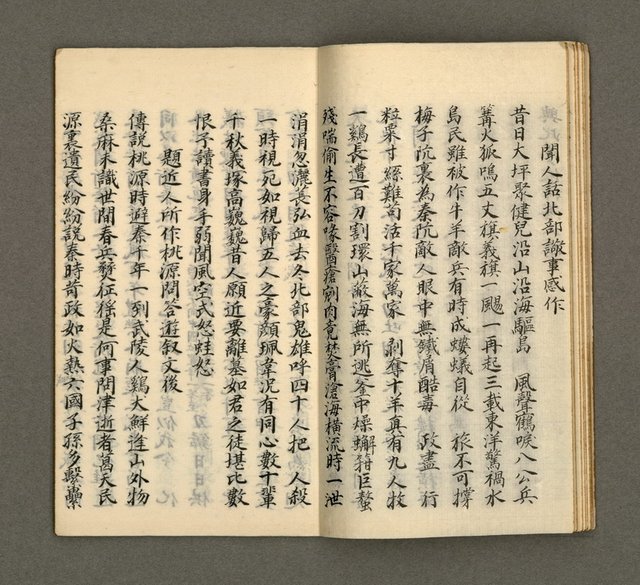 聞人話北部諏事感作
昔日大坪聚健兒沿山沿海驅島 風聲鶴唳八公兵
篝火狐鳴五丈旗義旗一颺一再起三載東洋驚禍水
島民雖被作牛羊敵兵有時成螻蟻自從 旅不可撐
梅子阬裏為秦阬敵人眼中無鐵屑酷毒 政盡 行
粒粟寸絲難苟活千家萬家 剥奪十羊真有九人牧
一鷄長遭百刀割環山敝海無所逃釜中燥蠏箝巨螯
殘喘偷生不容喙醫瘡剜肉竟焚膏滄海橫流時一泄
涓涓忽灑長弘血去冬北部鬼雄呼四十人把 人殺
一時視死如視歸五人之豪顏珮韋況有同心數十輩
千秋義塚高巍巍昔人願近要離墓如君之徒堪比數
恨予讀書身手弱聞風空式怒蛙怒
題近人所作桃源問答遊叙文後
傳說桃源時避秦千年一列武陵人鷄犬鮮逢山外物
桑麻未識世間春兵燹征徭是何事問津逝者葛天民
源裏遺民紛紛說秦時苛政如火熱六國子孫多繫纍